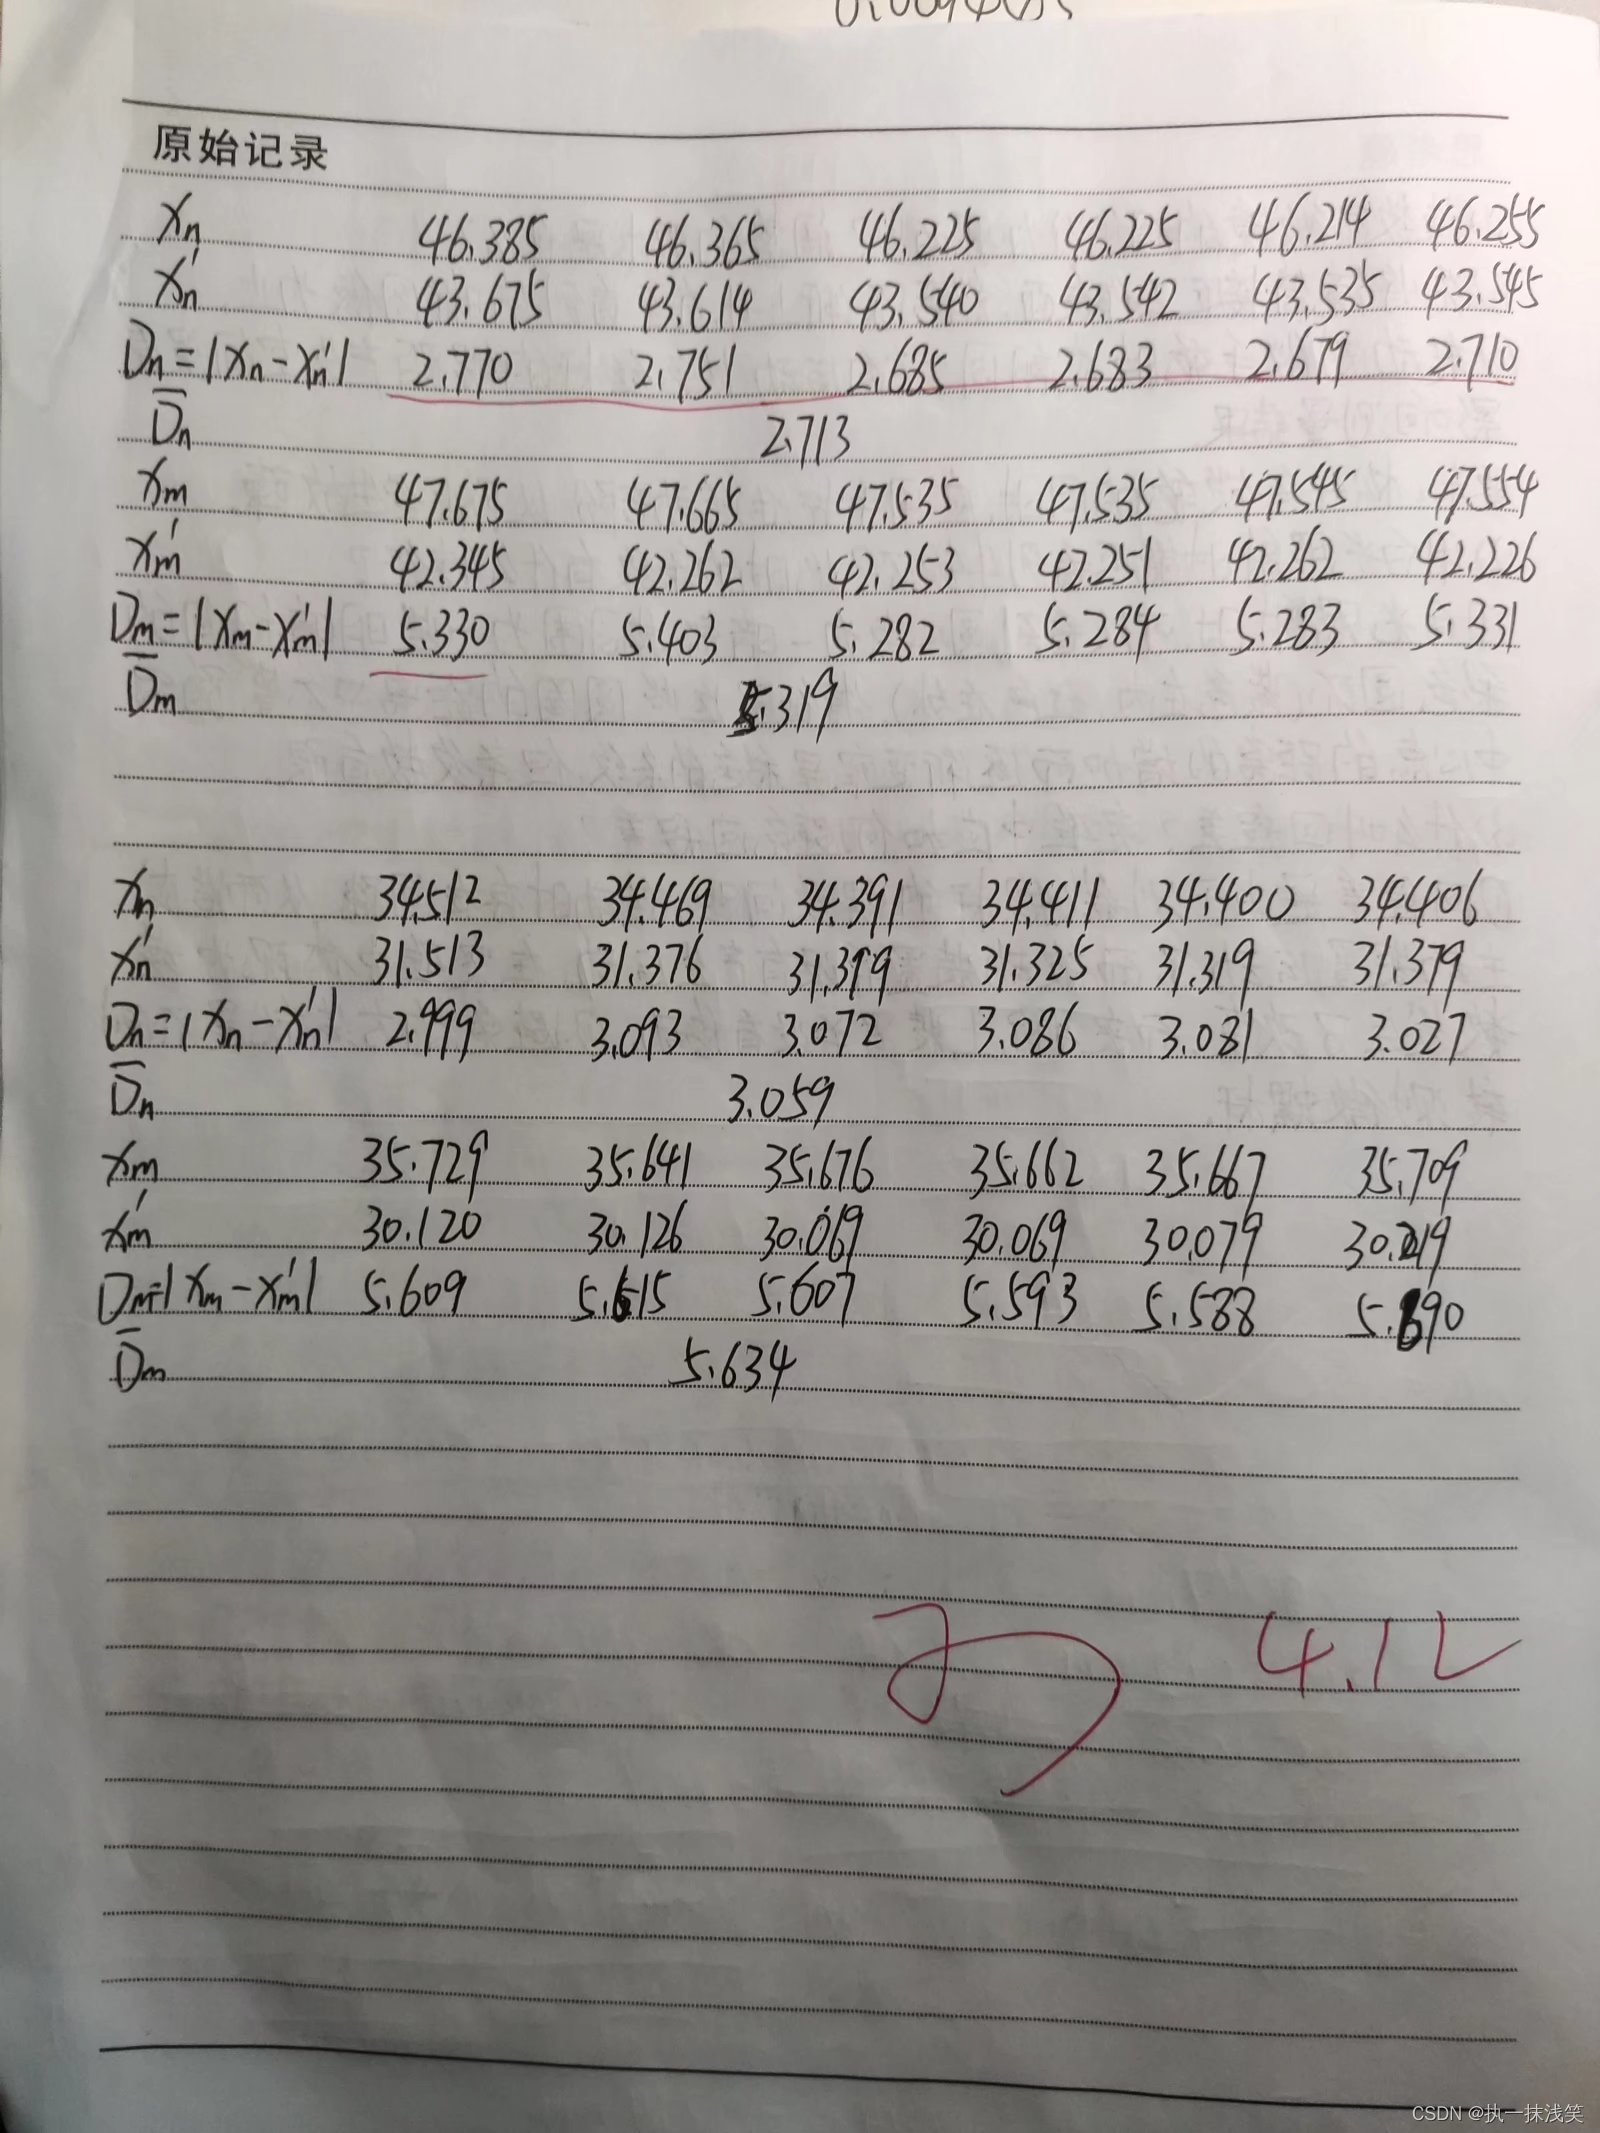 原始记录
Xn 46.385 46.365 46.225 46.225 46.214 46.255
Xn' 43.675 43.614 43.540 43.542 43.535 43.545
Dn=|Xn-Xn'| 2.770 2.751 2.685 2.683 2.679 2.710
D̅n 2.713
Xm 47.675 47.665 47.535 47.535 47.545 47.554
Xm' 42.345 42.262 42.253 42.251 42.262 42.226
Dm=|Xm-Xm'| 5.330 5.403 5.282 5.284 5.283 5.331
D̅m 5.319
Xn 34.512 34.469 34.391 34.411 34.400 34.406
Xn' 31.513 31.376 31.319 31.325 31.319 31.379
Dn=|Xn-Xn'| 2.999 3.093 3.072 3.086 3.081 3.027
D̅n 3.059
Xm 35.729 35.641 35.676 35.662 35.667 35.709
Xm' 30.120 30.126 30.069 30.069 30.079
Dm=|Xm-Xm'| 5.609 5.615 5.607 5.593 5.588
D̅m 5.634
4.12
CSDN @执一抹浅笑